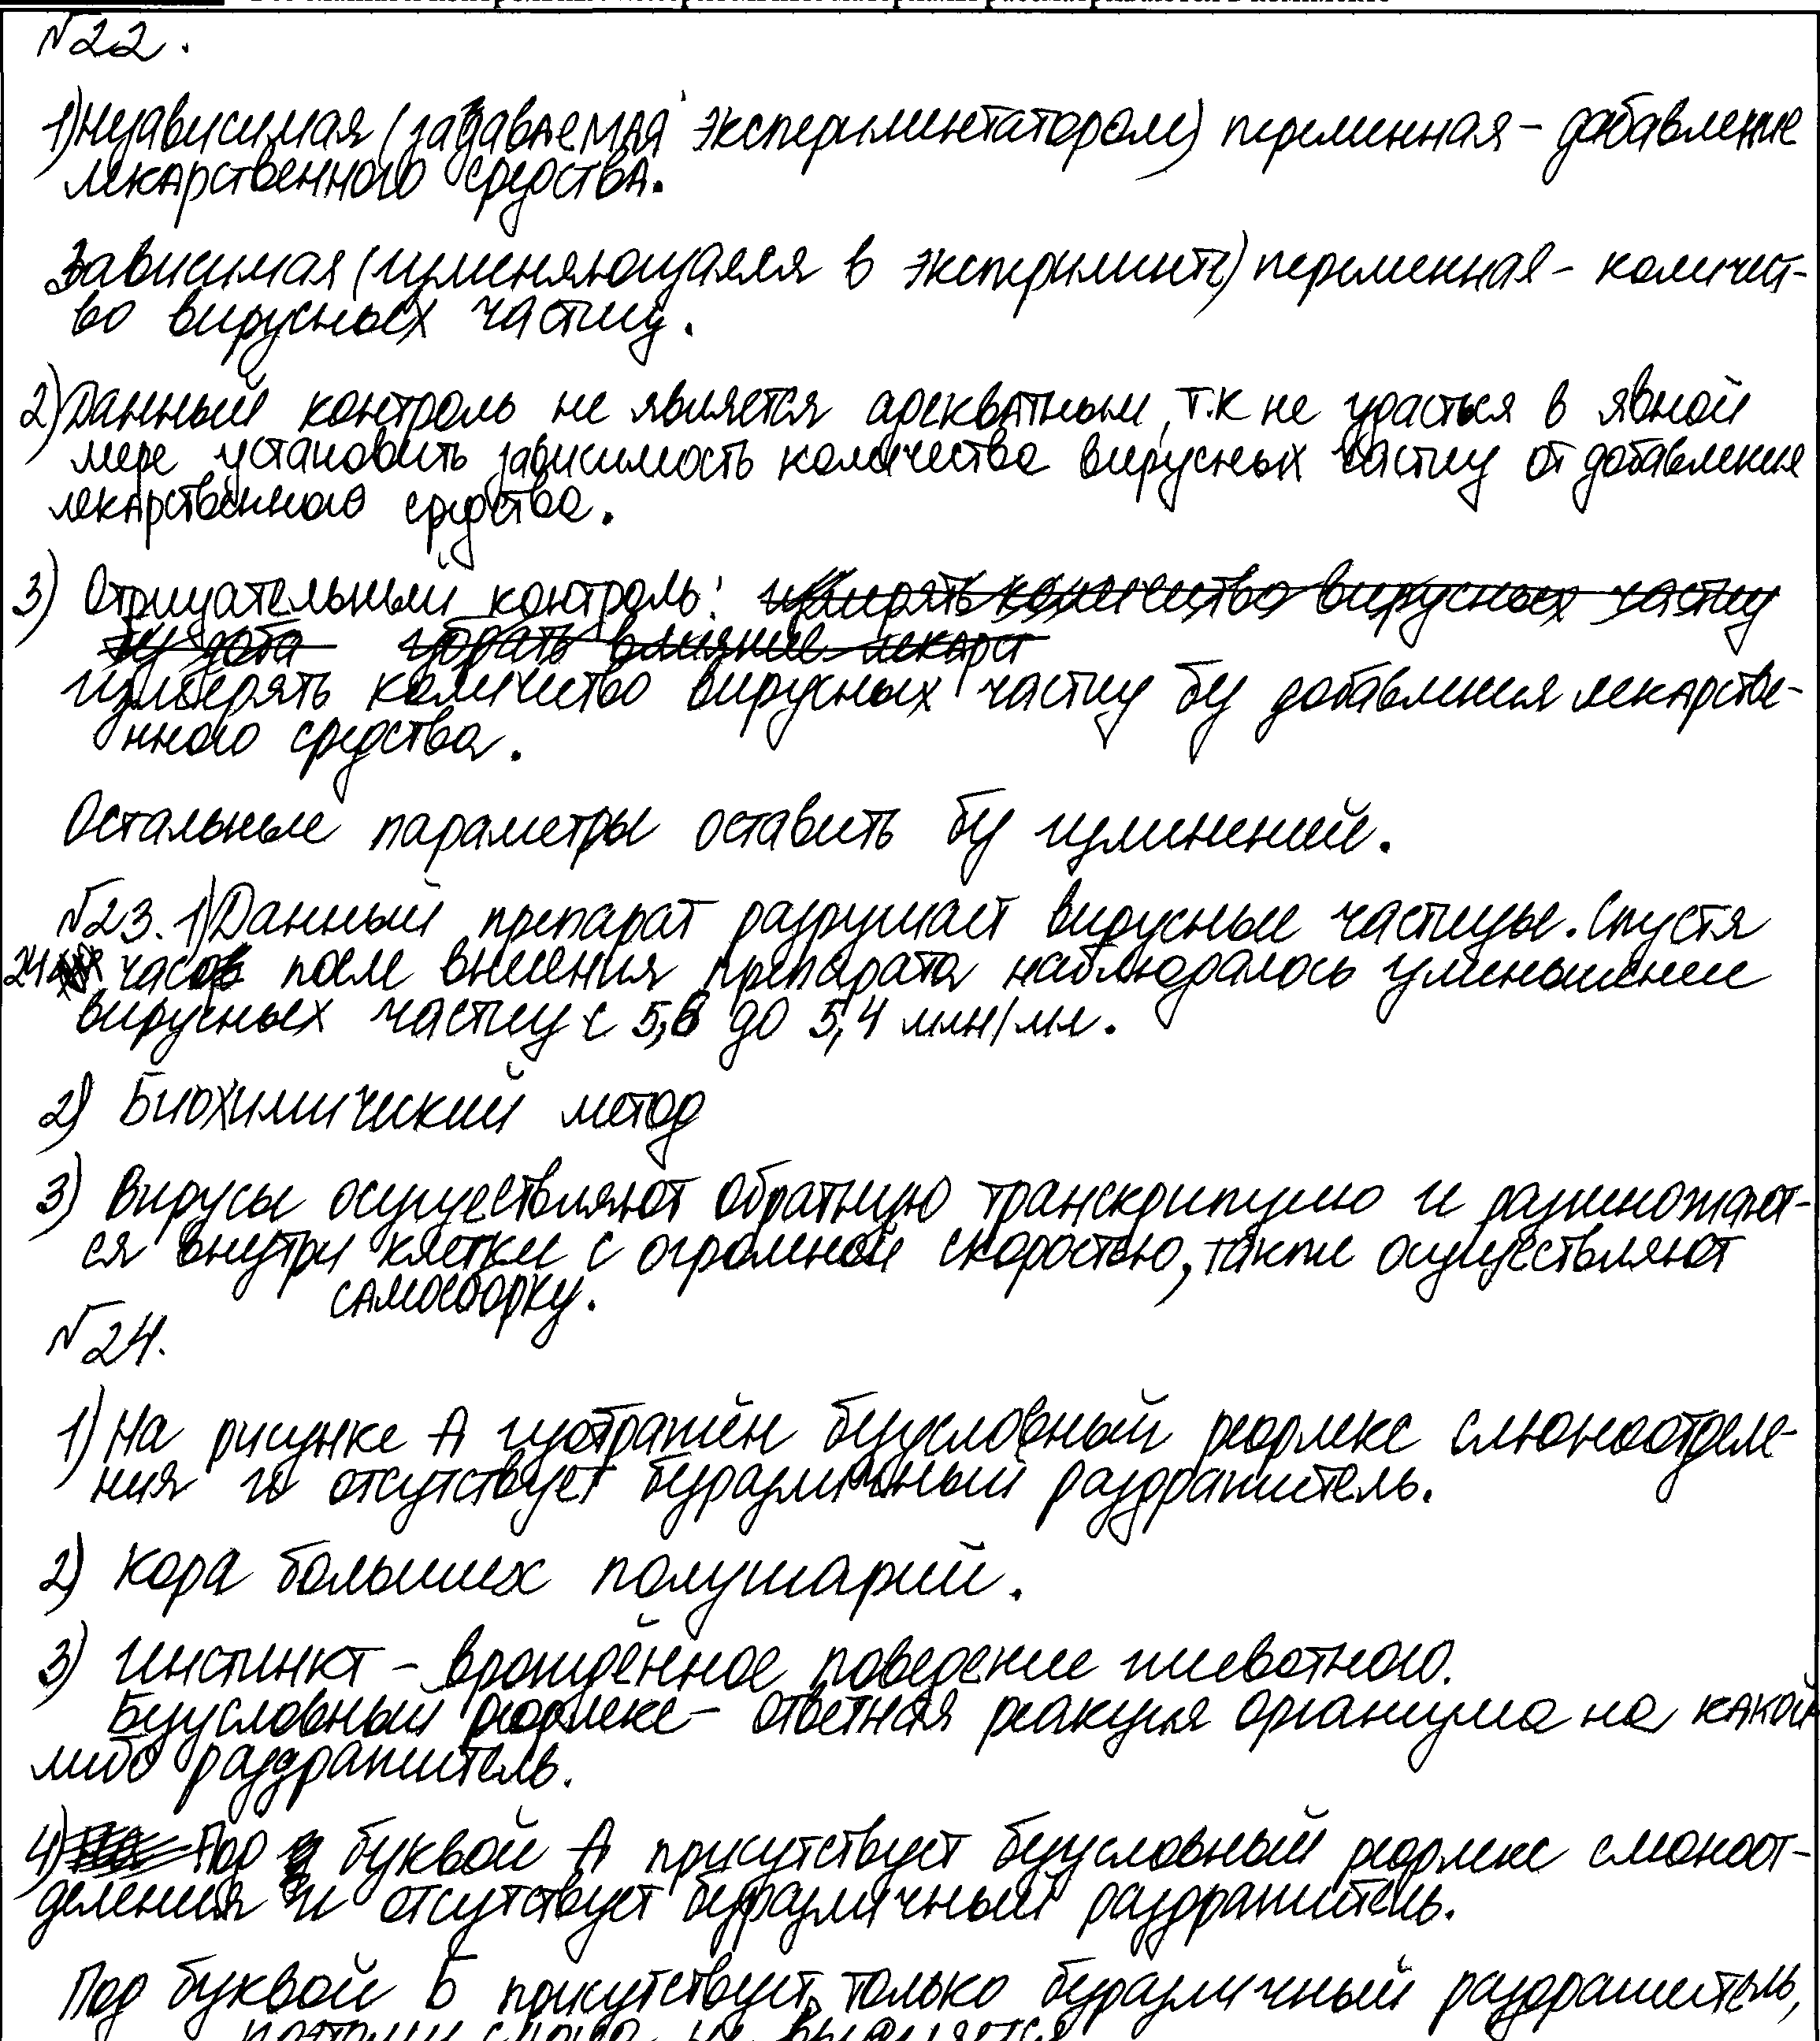 №22.
1) Независимая (задаваемая экспериментатором) переменная – добавление
лекарственного средства.
Зависимая (изменяющаяся в эксперименте) переменная – количест-
во вирусных частиц.
2) Данный контроль не является адекватным, т.к не удасться в явной
мере установить зависимость количества вирусных частиц от добавления
лекарственного средства.
3) Отрицательный контроль: измерять количество вирусных частиц
без доба убрать влияние лекарст
измерять количество вирусных частиц без добавления лекарстве-
нного средства.
Остальные параметры оставить без изменений.
№23. 1) Данный препарат разрушает вирусные частицы. Спустя
24 часов после внесения препарата наблюдалось уменьшение
вирусных частиц с 5,6 до 5,4 млн/мл.
2) Биохимический метод
3) Вирусы осуществляют обратную транскрипцию и размножают-
ся внутри клетки с огромной скоростью, также осуществляют
самосборку.
№24.
1) На рисунке А изображён безусловный рефлекс слюноотделе-
ния и отсутствует безразличный раздражитель.
2) Кора больших полушарий.
3) Инстинкт – врождённое поведение животного.
Безусловный рефлекс – ответная реакция организма на какой
либо раздражитель.
4) Под буквой А присутствует безусловный рефлекс слюноот-
деления и отсутствует безразличный раздражитель.
Под буквой Б присутствует только безразличный раздражитель,